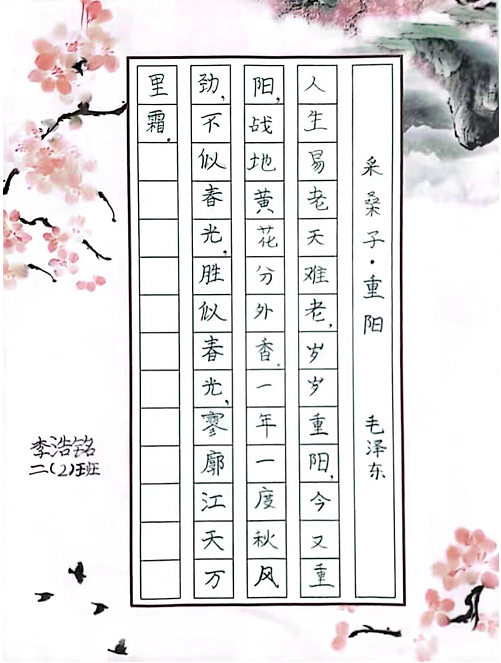 采桑子·重阳 毛泽东
人生易老天难老,岁岁重阳,今又重
阳,战地黄花分外香。一年一度秋风
劲,不似春光,胜似春光,寥廓江天万
里霜。
李浩铭
二(2)班